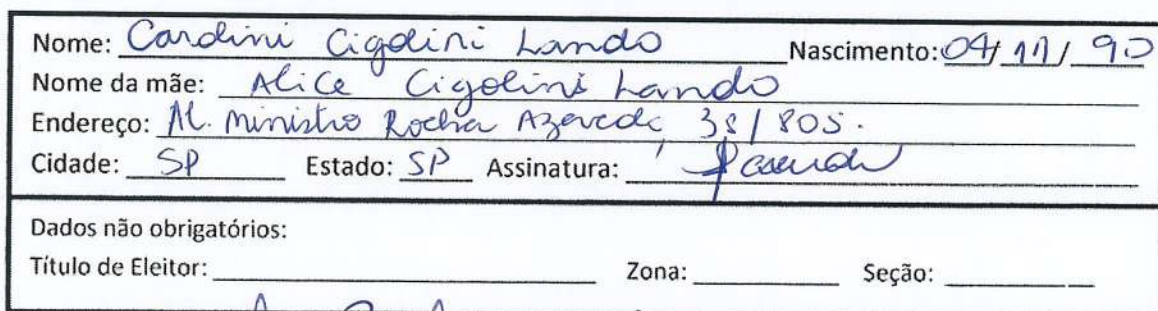 Nome: Cardini Cigolini Lando Nascimento: 04/11/90
Nome da mãe: Alice Cigolini Lando
Endereço: Al. Ministro Rocha Azevedo, 38/805.
Cidade: SP Estado: SP Assinatura:
Dados não obrigatórios:
Título de Eleitor: Zona: Seção: